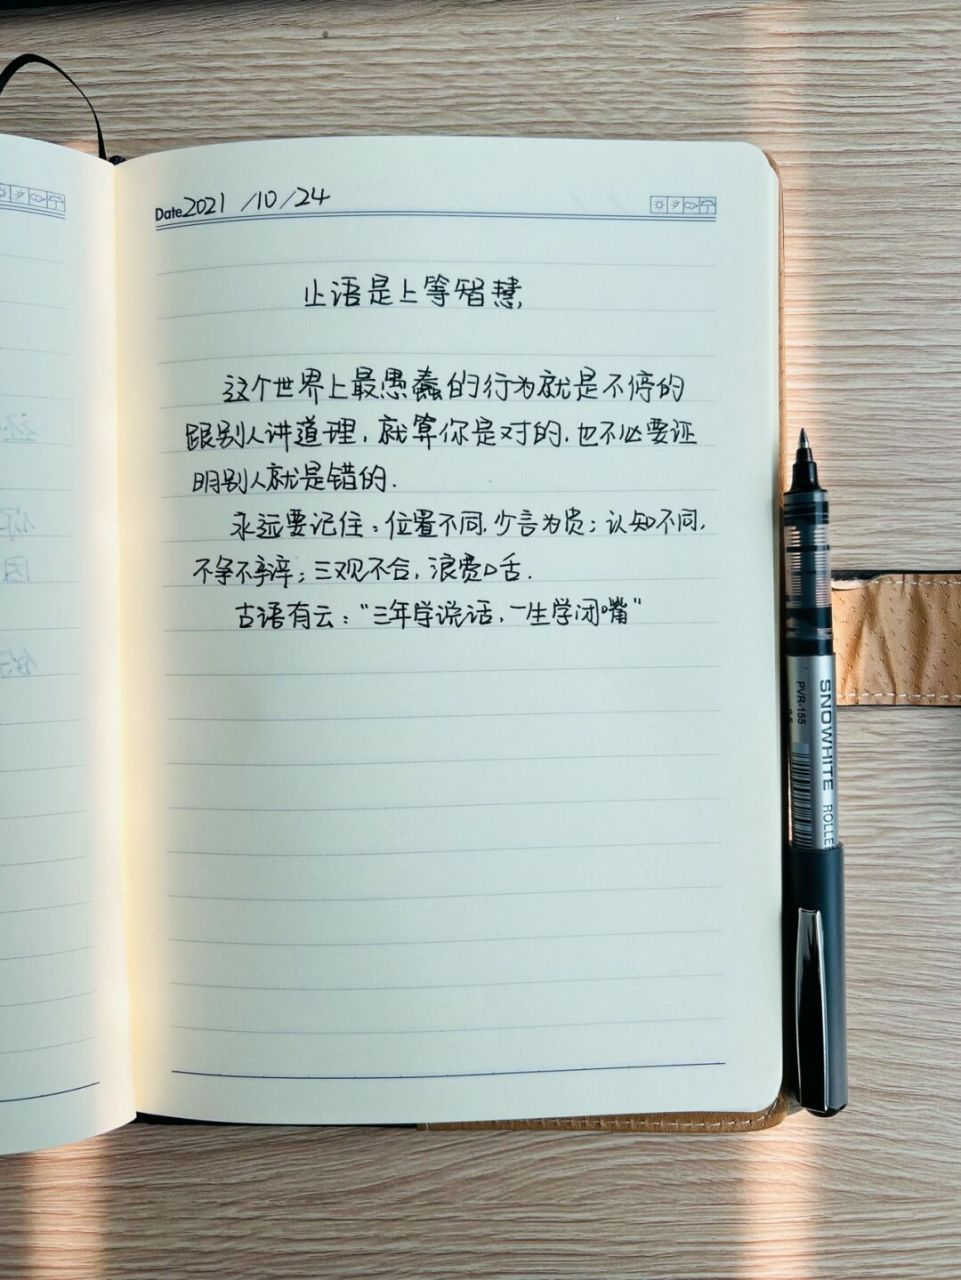 Date 2021 /10 /24
止语是上等智慧
这个世界上最愚蠢的行为就是不停的
跟别人讲道理，就算你是对的，也不必要证
明别人就是错的.
永远要记住：位置不同，少言为贵；认知不同，
不争不辩；三观不合，浪费口舌.
古语有云：“三年学说话，一生学闭嘴”
SNOWHITE ROLLE
PVR-155